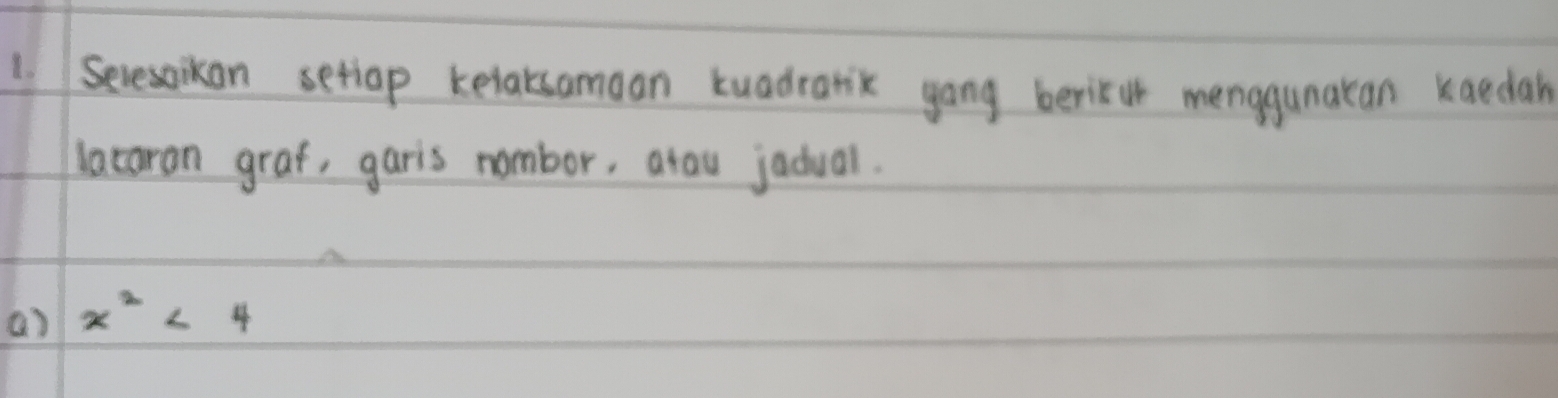 1. Selesaikan setiap ketaksamaan kuadratik yang berikut menggunakan kaedah
lakaran graf, garis nombor, atau jadual.
a) x² < 4